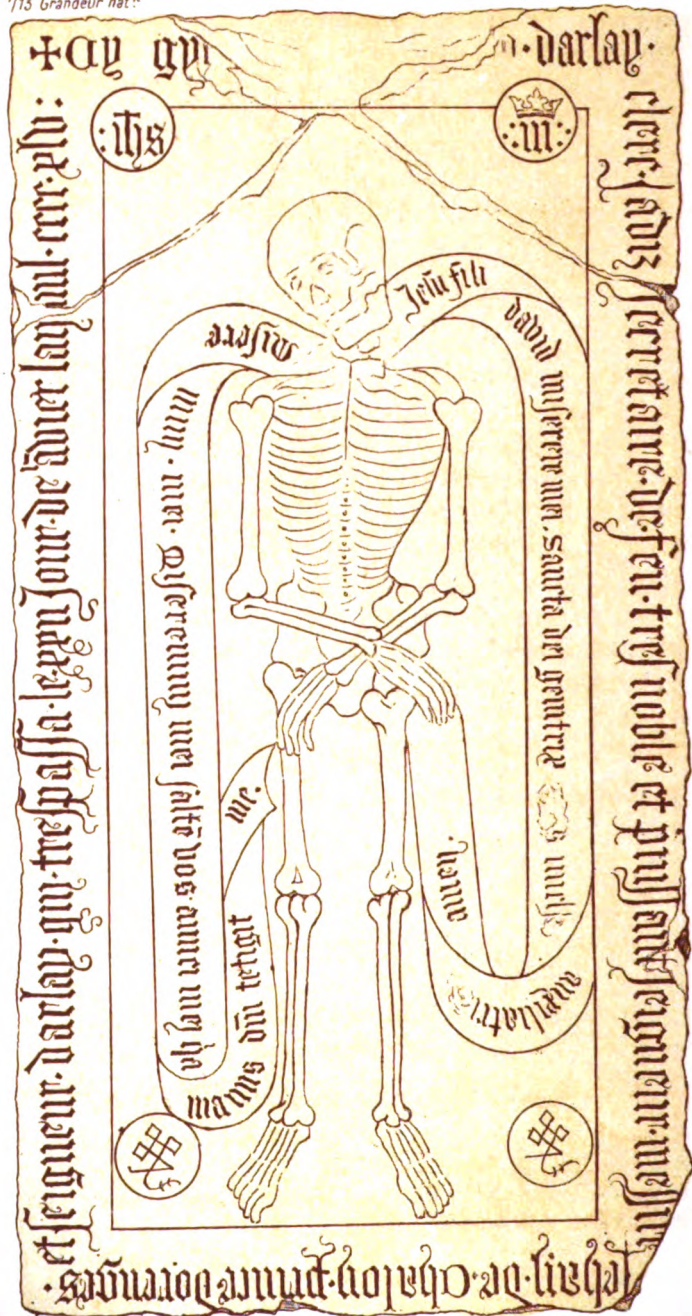 1/13 Grandeur nat.
✠ Cy gy darlay ·
clerc · jadiz · secretaire · de · feu · tres noble et puissant seigneur · messire
jehan · de · chalon · prince dorenges ·
et seigneur · darlay · qui · trespassa · le xxvi jour · de · advier lan mil · cccc ·
: ihs :
: m :
Jesu fili
david miserere mei · sancta dei genitrix miss
auxiliatrix
Misere
mini · mei · Miseremini mei salte vos amici mei qa
manus dni tetigit
me ·